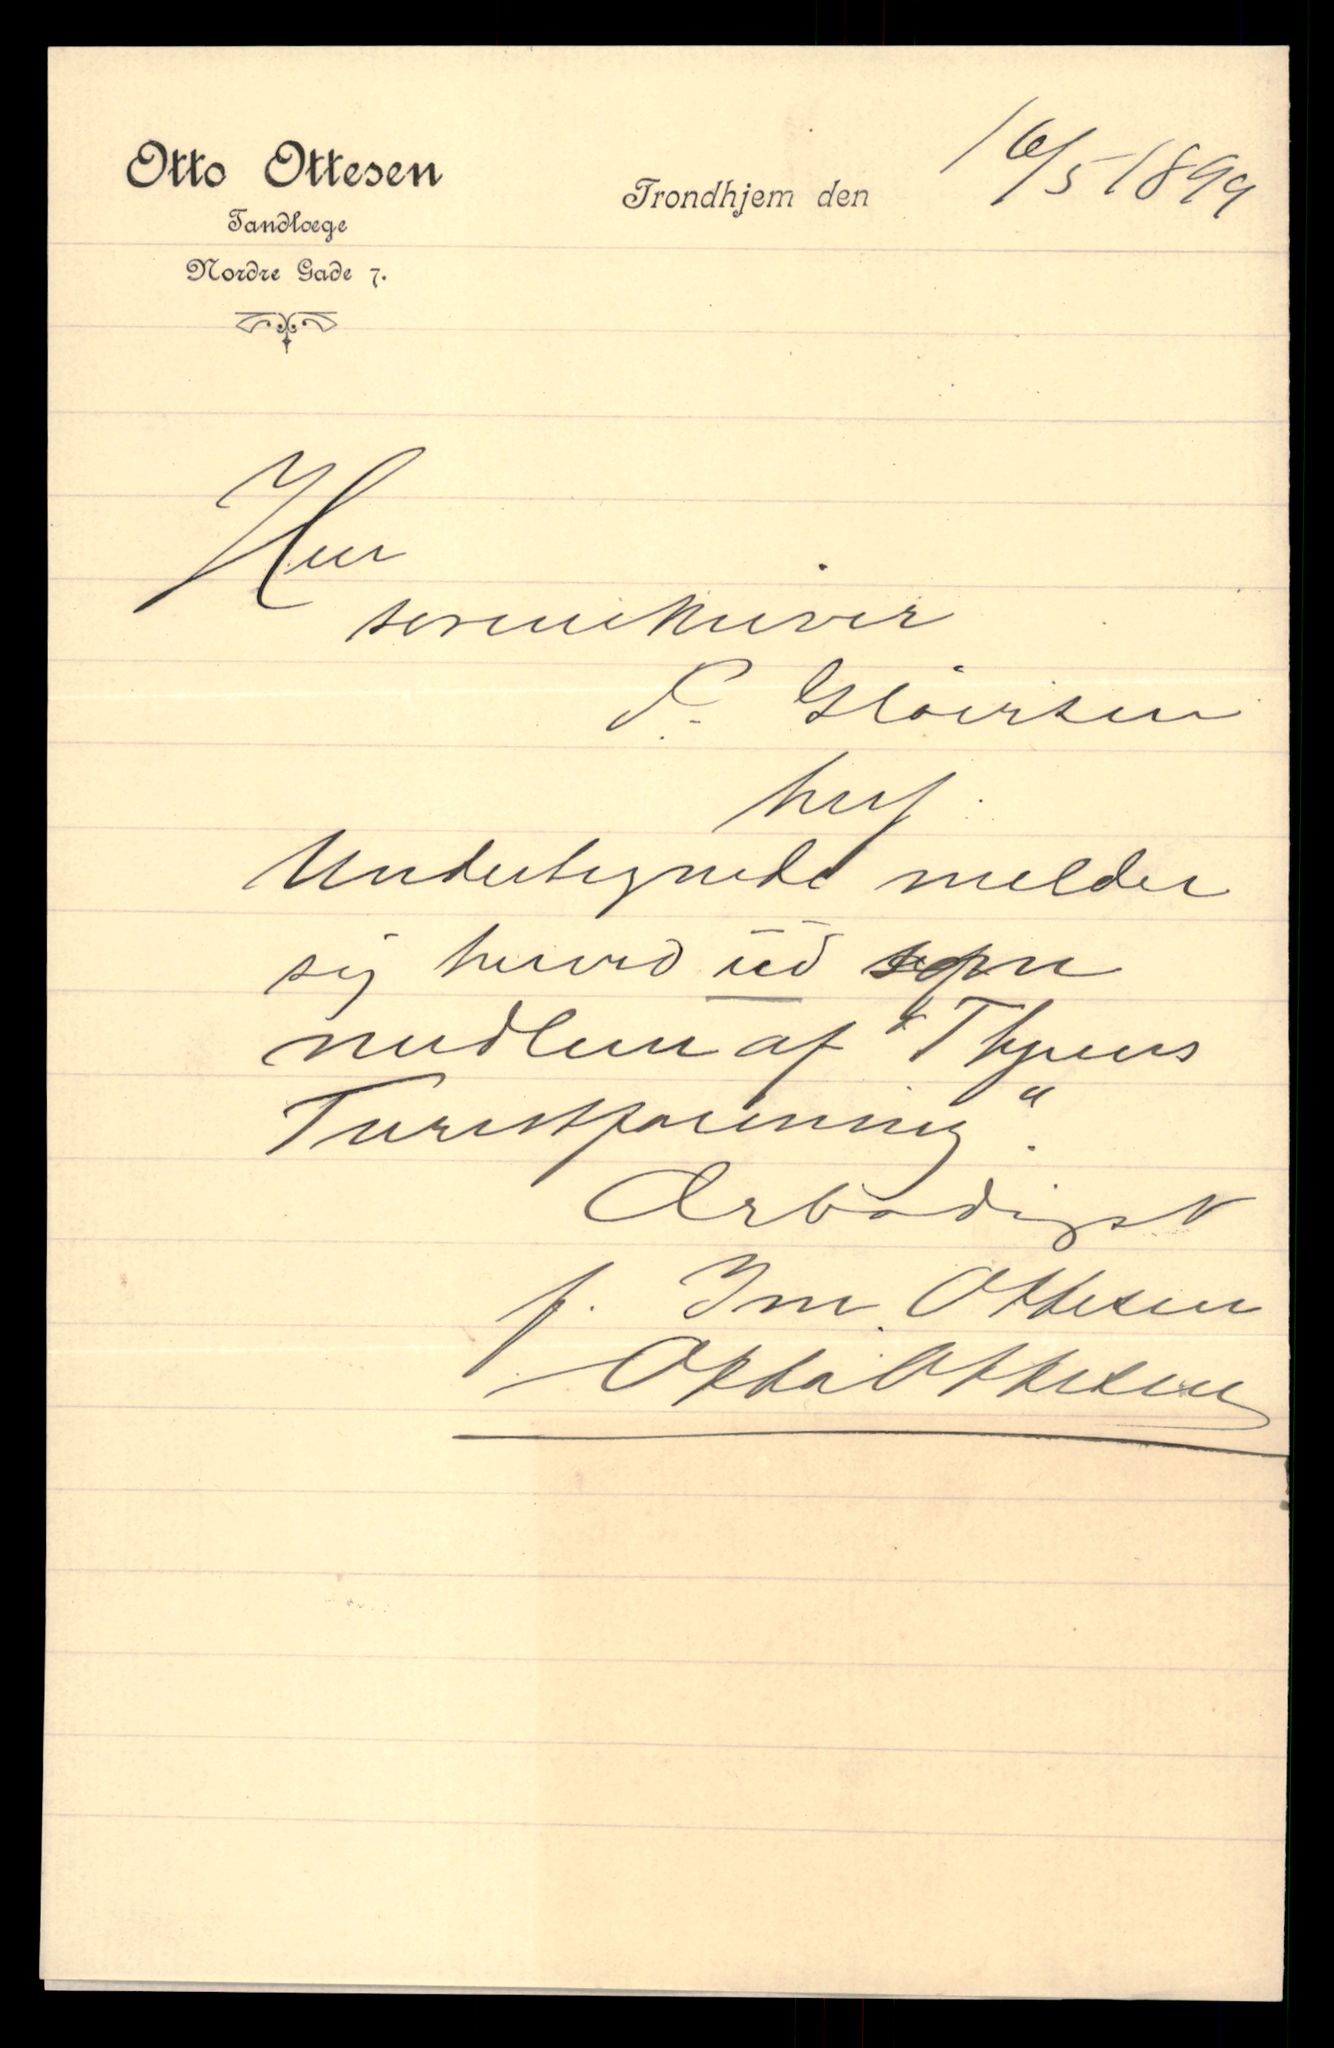 Otto Ottesen
Tandlœge
Nordre Gade 7.
Trondhjem den 16/5 1899
Herr
P. Gløersen
her.
Undertegnede melder
sig herved ud som
medlem af "Thjems
Turistforening".
Ærbødigst
p. Im. Ottesen
Otto Ottesen